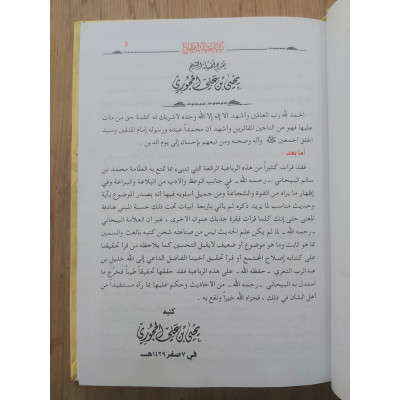 تقديم فضيلة الشيخ
يحيى بن علي الحجوري
الحمد لله رب العالمين وأشهد ألا إله إلا الله وحده لا شريك له كلمة حق من مات
عليها فهو من الناجين الفائزين وأشهد أن محمداً عبده ورسوله إمام المتقين وسيد
الخلق أجمعين ﷺ وآله وصحبه ومن تبعهم بإحسان إلى يوم الدين.
أما بعد :
فقد قرأت كثيراً من هذه الرباعية الرائعة التي تنبيء بما تمتع به العلامة محمد بن
سالم البيحاني ـ رحمه الله ـ في جانب الوعظ والأدب من البلاغة والبراعة وفي
إظهار ما يراه من القوة والشجاعة ومن جميل أسلوبه فيها أنه يصدر الموضوع بآية
وحديث مناسب لما يريد ذكره ثم يأتي بأربعة أبيات تحت ذلك حسنة المبنى هادفة
المعنى حتى إنك كلما قرأت فقرة جذبك عنوان الأخرى ، غير أن العلامة البيحاني
ـ رحمه الله ـ لما لم يكن علم الحديث ليس من صناعته شحن كتبه بالغث والسمين
مما هو ثابت وما هو موضوع أو ضعيف لا يقبل التحسين كما يلاحظه من قرأ تحقيقنا
على كتابه إصلاح المجتمع أو قرأ تحقيق أخينا الفاضل الداعي إلى الله خليل بن
عبد الرب التعزي ـ حفظه الله ـ على هذه الرباعية فقد حققها تحقيقاً طيباً فخرّج ما
استدل به البيحاني ـ رحمه الله ـ من الأحاديث وحكم عليها بما رآه مستفيداً من
أهل الشأن في ذلك، فجزاه الله خيراً ونفع به .
كتبه
يحيى بن علي الحجوري
في ٧ صفر ١٤٢٩هـ